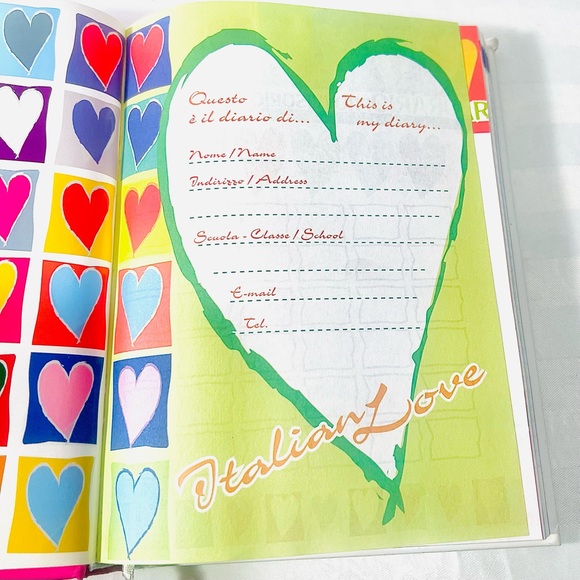 Questo
è il diario di...
This is
my diary...
Nome / Name
Indirizzo / Address
Scuola - Classe / School
E-mail
Tel.
Italian Love
AR